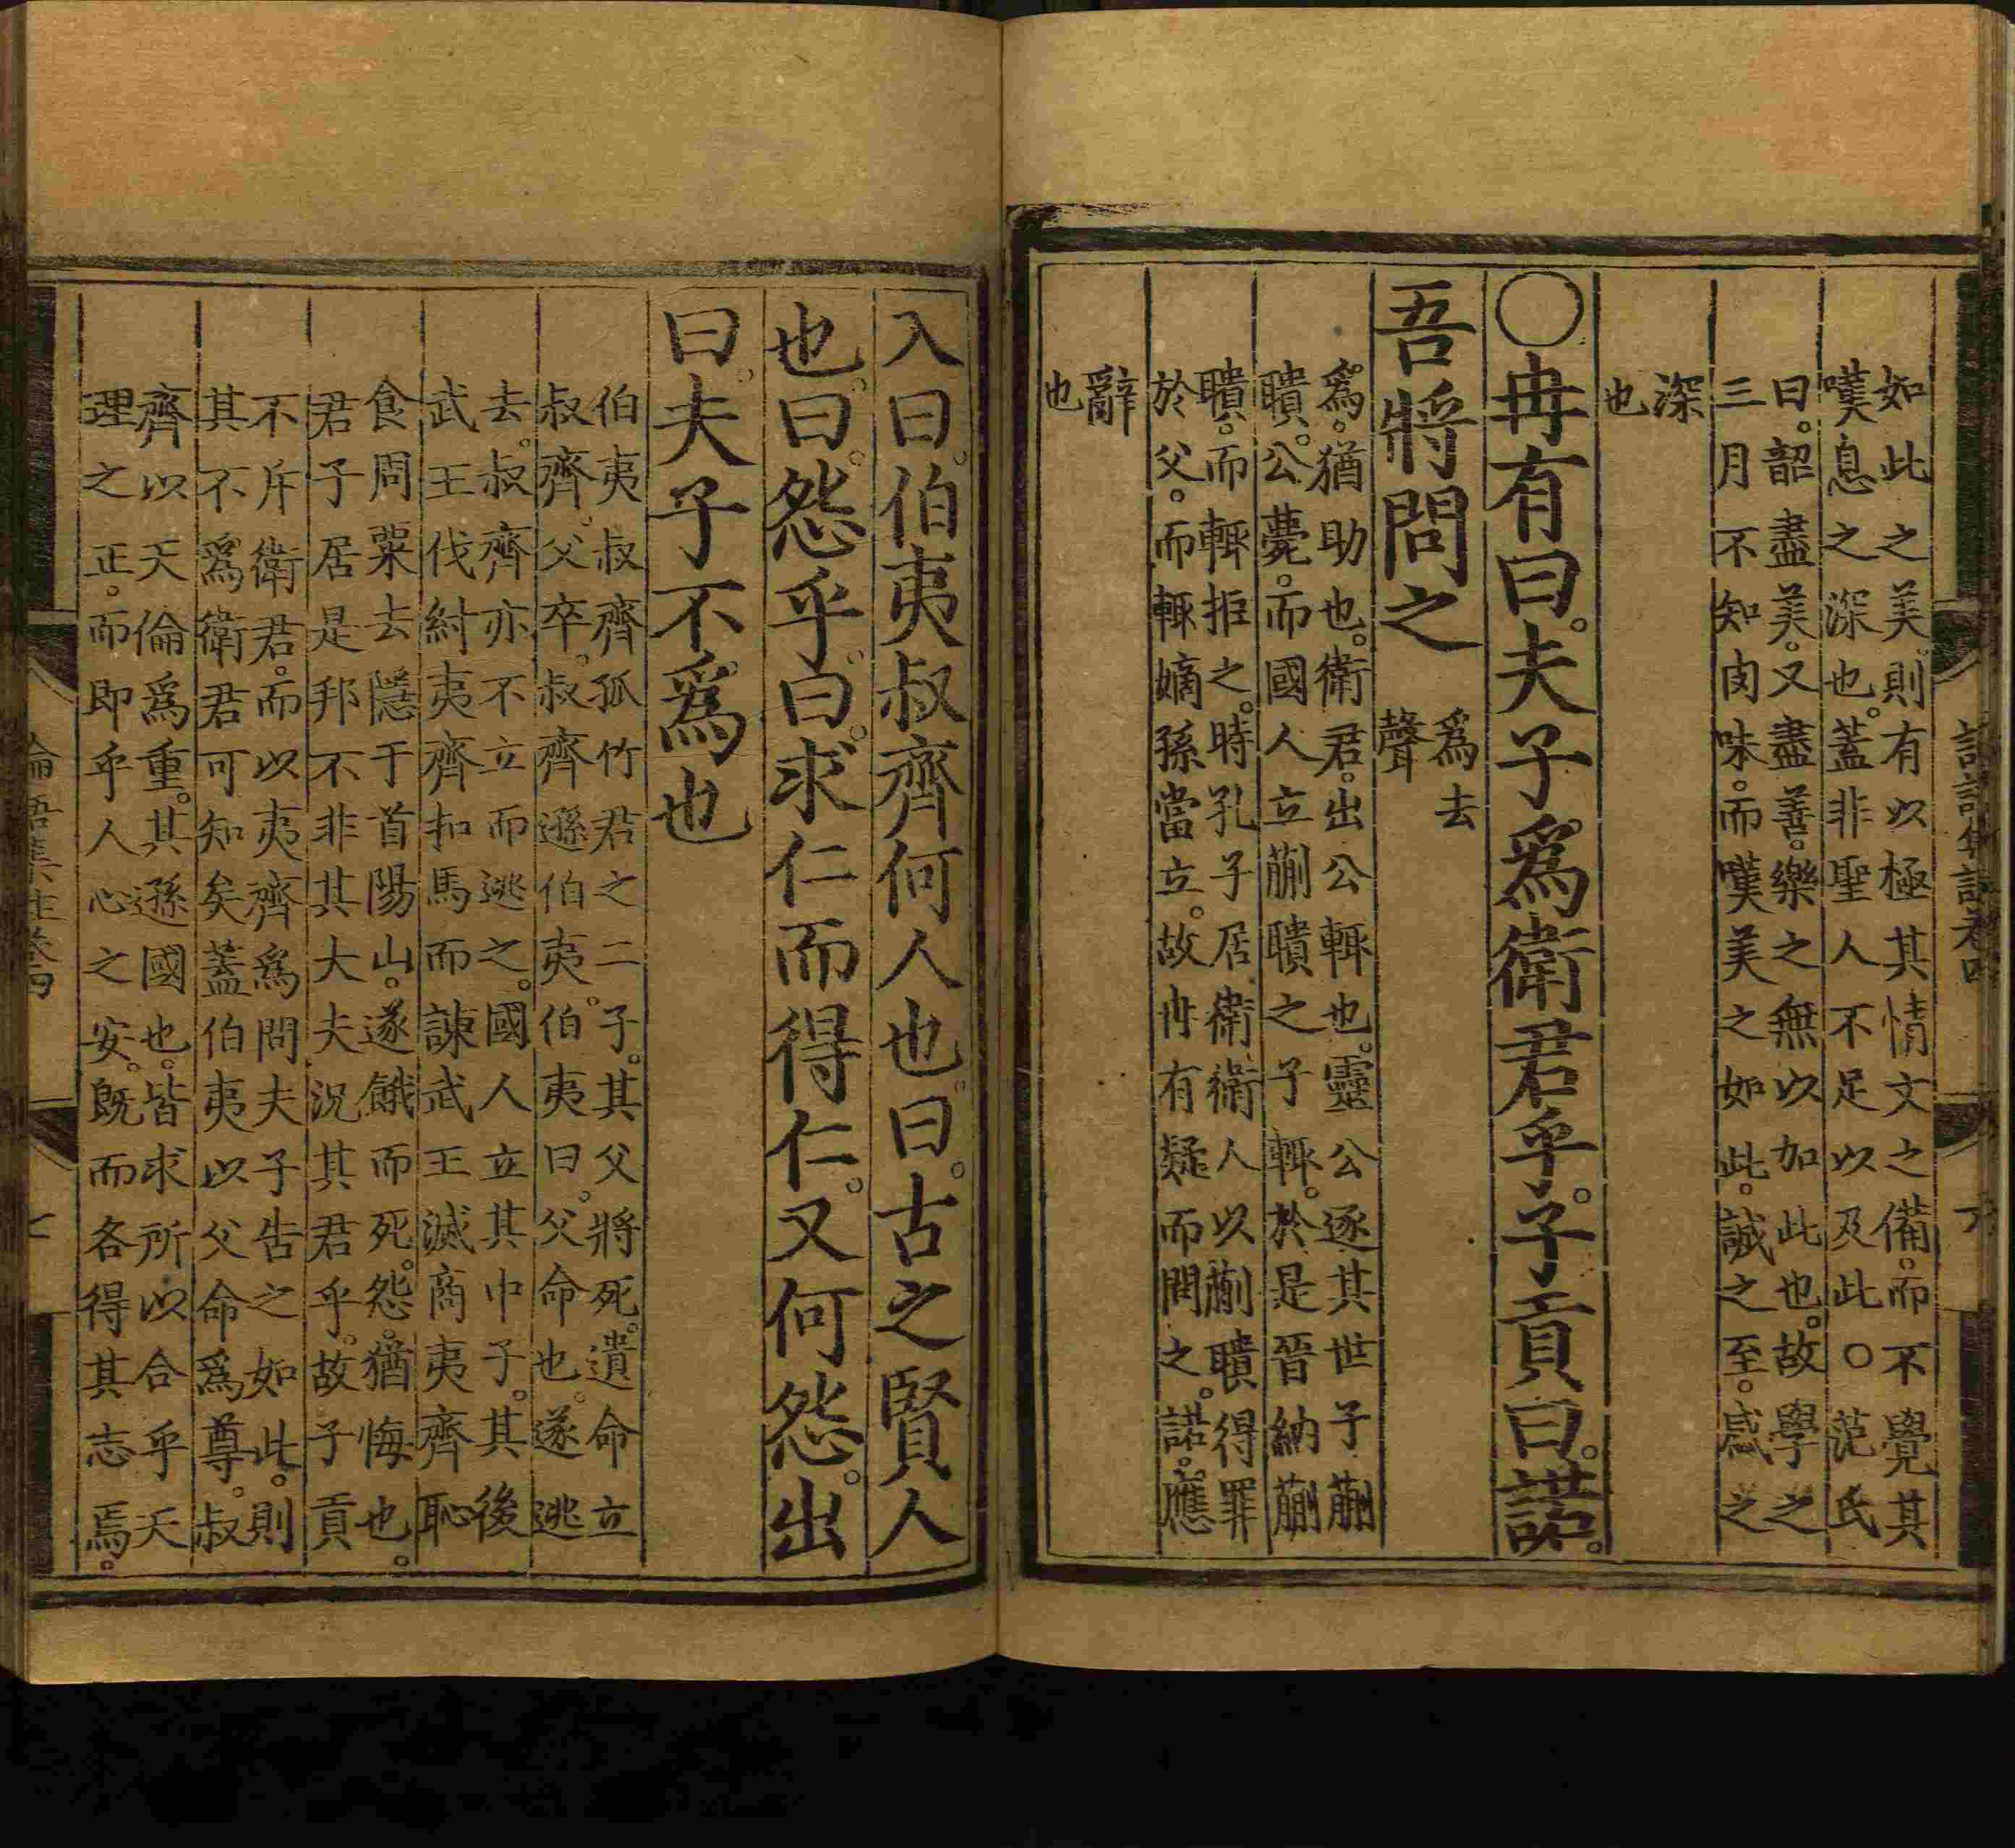 如此之美則有以極其情文之備而不覺其
嘆息之深也蓋非聖人不足以及此○范氏
曰韶盡美又盡善樂之無以加此也故學之
三月不知肉味而嘆美之如此誠之至感之
深
也
○冉有曰夫子爲衛君乎子貢曰諾
吾將問之
爲去
聲
爲猶助也衛君出公輒也靈公逐其世子蒯
聵公薨而國人立蒯聵之子輒於是晉納蒯
聵而輒拒之時孔子居衛衛人以蒯聵得罪
於父而輒嫡孫當立故冉有疑而問之諾應
辭
也
入曰伯夷叔齊何人也曰古之賢人
也曰怨乎曰求仁而得仁又何怨出
曰夫子不爲也
伯夷叔齊孤竹君之二子其父將死遺命立
叔齊父卒叔齊遜伯夷伯夷曰父命也遂逃
去叔齊亦不立而逃之國人立其中子其後
武王伐紂夷齊扣馬而諫武王滅商夷齊恥
食周粟去隱于首陽山遂餓而死怨猶悔也
君子居是邦不非其大夫況其君乎故子貢
不斥衛君而以夷齊爲問夫子告之如此則
其不爲衛君可知矣蓋伯夷以父命爲尊叔
齊以天倫爲重其遜國也皆求所以合乎天
理之正而即乎人心之安既而各得其志焉